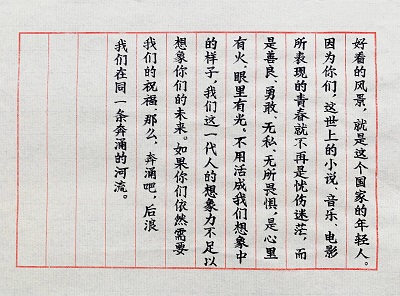 好看的风景，就是这个国家的年轻人。
因为你们，这世上的小说、音乐、电影
所表现的青春就不再是忧伤迷茫，而
是善良、勇敢、无私、无所畏惧，是心里
有火、眼里有光。不用活成我们想象中
的样子，我们这一代人的想象力不足以
想象你们的未来。如果你们依然需要
我们的祝福，那么，奔涌吧，后浪
我们在同一条奔涌的河流。